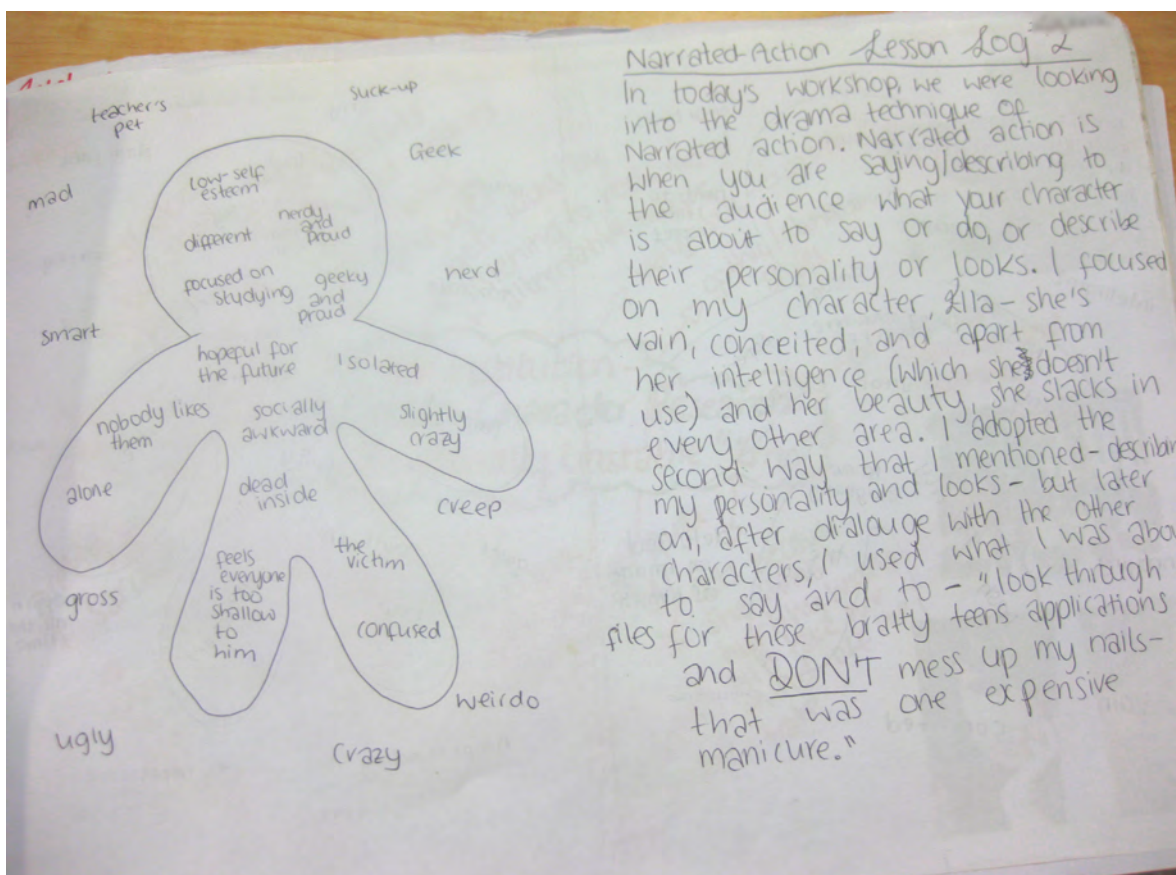 teacher's
pet
suck-up
Geek
mad
nerd
smart
creep
gross
weirdo
ugly
crazy
low-self
esteem
nerdy
and
proud
different
focused on
studying
geeky
and
proud
hopeful for
the future
isolated
nobody likes
them
socially
awkward
slightly
crazy
alone
dead
inside
the
victim
feels
everyone
is too
shallow
to
him
confused
Narrated-Action Lesson Log 2
In today's workshop, we were looking
into the drama technique of
Narrated action. Narrated action is
when you are saying/describing to
the audience what your character
is about to say or do, or describe
their personality or looks. I focused
on my character, Ella - she's
vain, conceited, and apart from
her intelligence (which she doesn't
use) and her beauty, she slacks in
every other area. I adopted the
second way that I mentioned - describing
my personality and looks - but later
on, after dialouge with the other
characters, I used what I was abou
to say and to - "look through
files for these bratty teens applications
and DON'T mess up my nails-
that was one expensive
manicure."